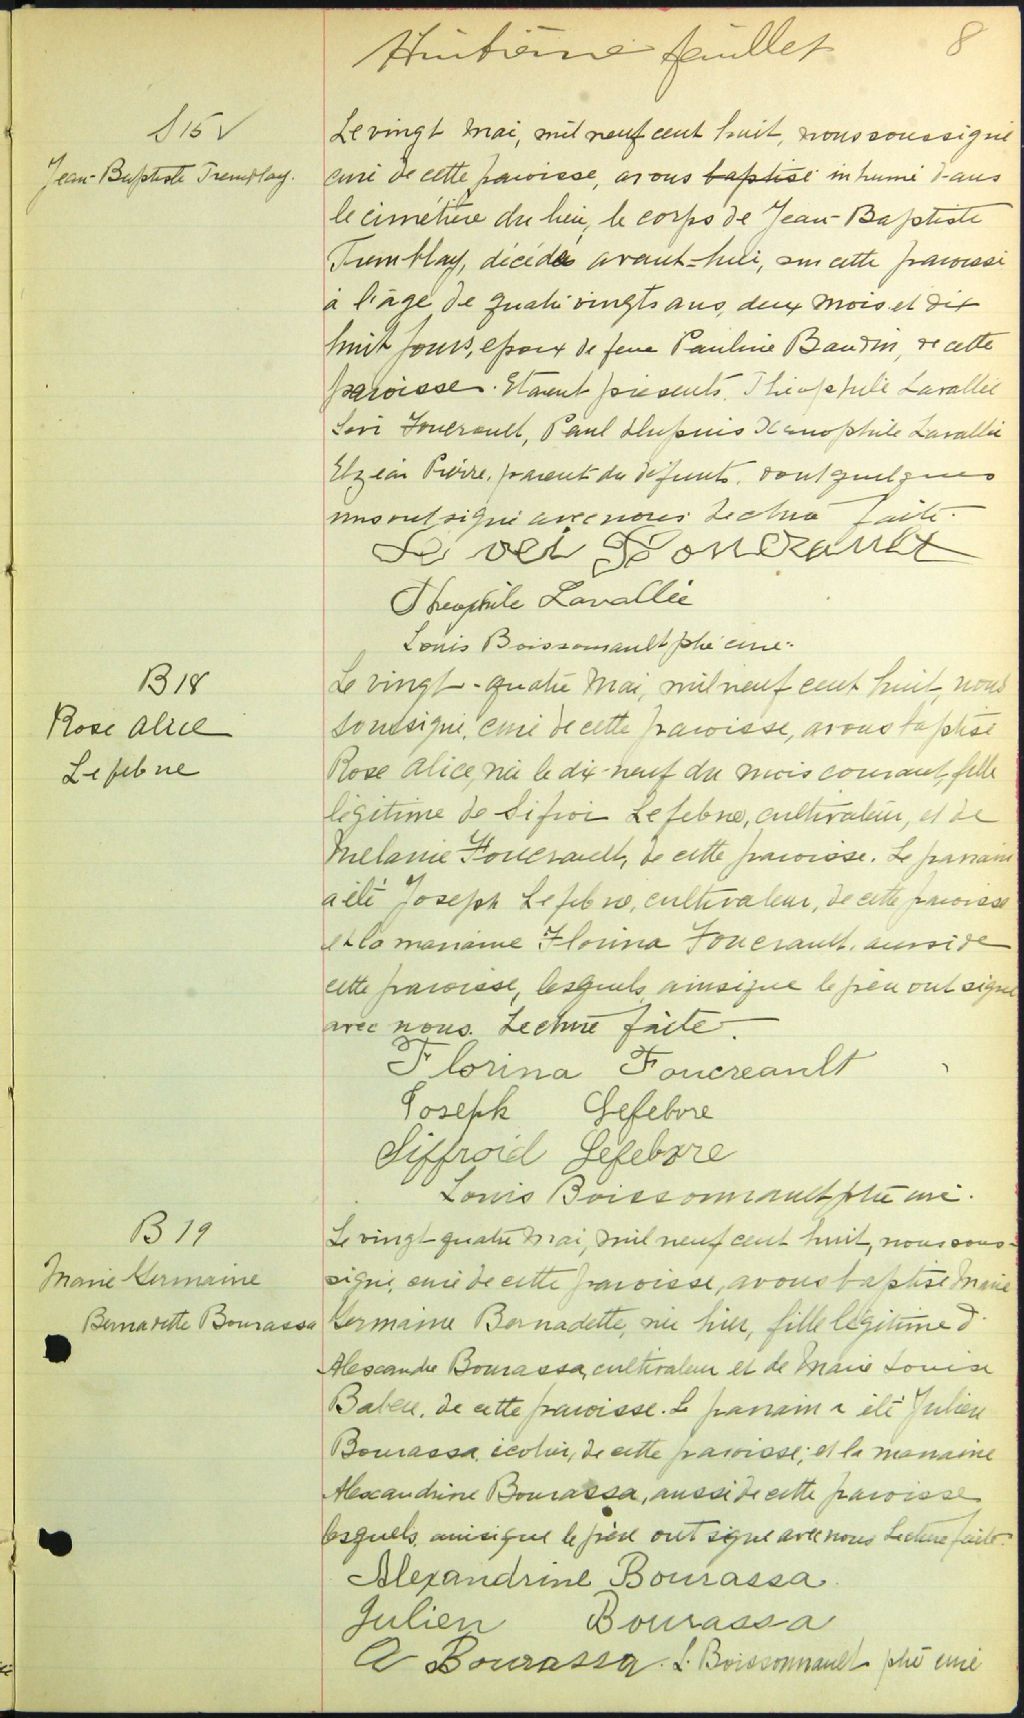 Huitième feuillet 8
S 15 √
Jean-Baptiste Tremblay.
Le vingt Mai, mil neuf cent huit, nous soussigné
curé de cette paroisse, avons baptisé inhumé dans
le cimétière du lieu, le corps de Jean-Baptiste
Tremblay, décédé avant-hier, sur cette paroisse
à l'âge de quatrevingts ans, deux mois et dix
huit jours, époux de feue Pauline Baudin, de cette
paroisse. Etaient présents, Théophile Lavallée
Lévi Foucrault, Paul Dupuis Théophile Lavallée
Elzéar Pierre, parent du défunts, dont quelques
uns ont signé avec nous. Lecture faite.
Levei Foucrault
Theophile Lavallée
Louis Boissonnault ptre curé.
B 18
Rose Alice
Lefebvre
Le vingt-quatre Mai, mil neuf cent huit, nous
soussigné, curé de cette paroisse, avons baptisé
Rose Alice, née le dix-neuf du mois courant, fille
légitime de Sifroi Lefebvre, cultivateur, et de
Mélanie Foucrault, de cette paroisse. Le parrain
a été Joseph Lefebvre, cultivateur, de cette paroisse
et la marraine Florina Foucrault, aussi de
cette paroisse, lesquels, ainsique le père ont signé
avec nous. Lecture faite.
Florina Foucreault
Joseph Lefebvre
Siffroid Lefebvre
Louis Boissonnault ptre curé.
B 19
Marie Germaine
Bernadette Bourassa
Le vingt-quatre Mai, mil neuf cent huit, nous sous-
signé, curé de cette paroisse, avons baptisé Marie
Germaine Bernadette, née hier, fille légitime d'
Alexandre Bourassa, cultivateur et de Marie Louise
Babeu, de cette paroisse. Le parrain a été Julien
Bourassa, écolier, de cette paroisse; et la marraine
Alexandrine Bourassa, aussi de cette paroisse
lesquels, ainsique le père ont signé avec nous Lecture faite.
Alexandrine Bourassa.
Julien Bourassa
A Bourassa. L. Boissonnault ptre curé